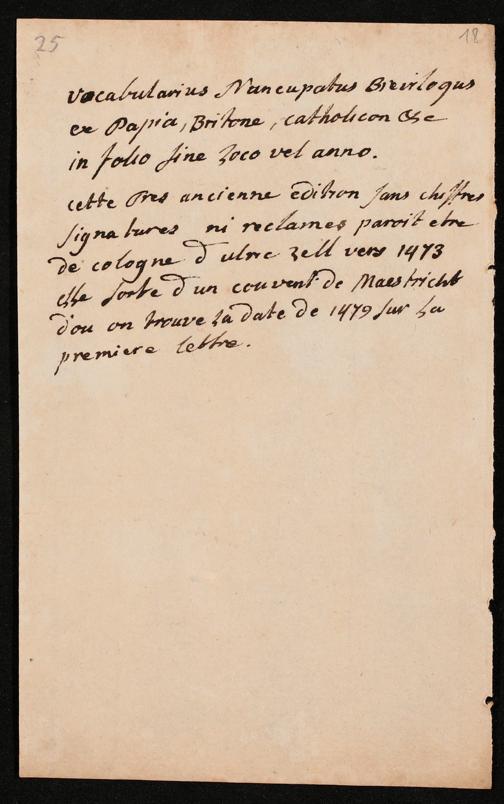 25
18
vocabularius Nancupatus Brevilogus
ex Papia, Britone, catholicon &c
in folio sine Loco vel anno.
cette tres ancienne edition sans chiffres
signatures ni reclames paroit etre
de cologne d ulric zell vers 1473
elle sorte d un couvent de Maestricht
d'ou on trouve La date de 1479 sur La
premiere lettre.